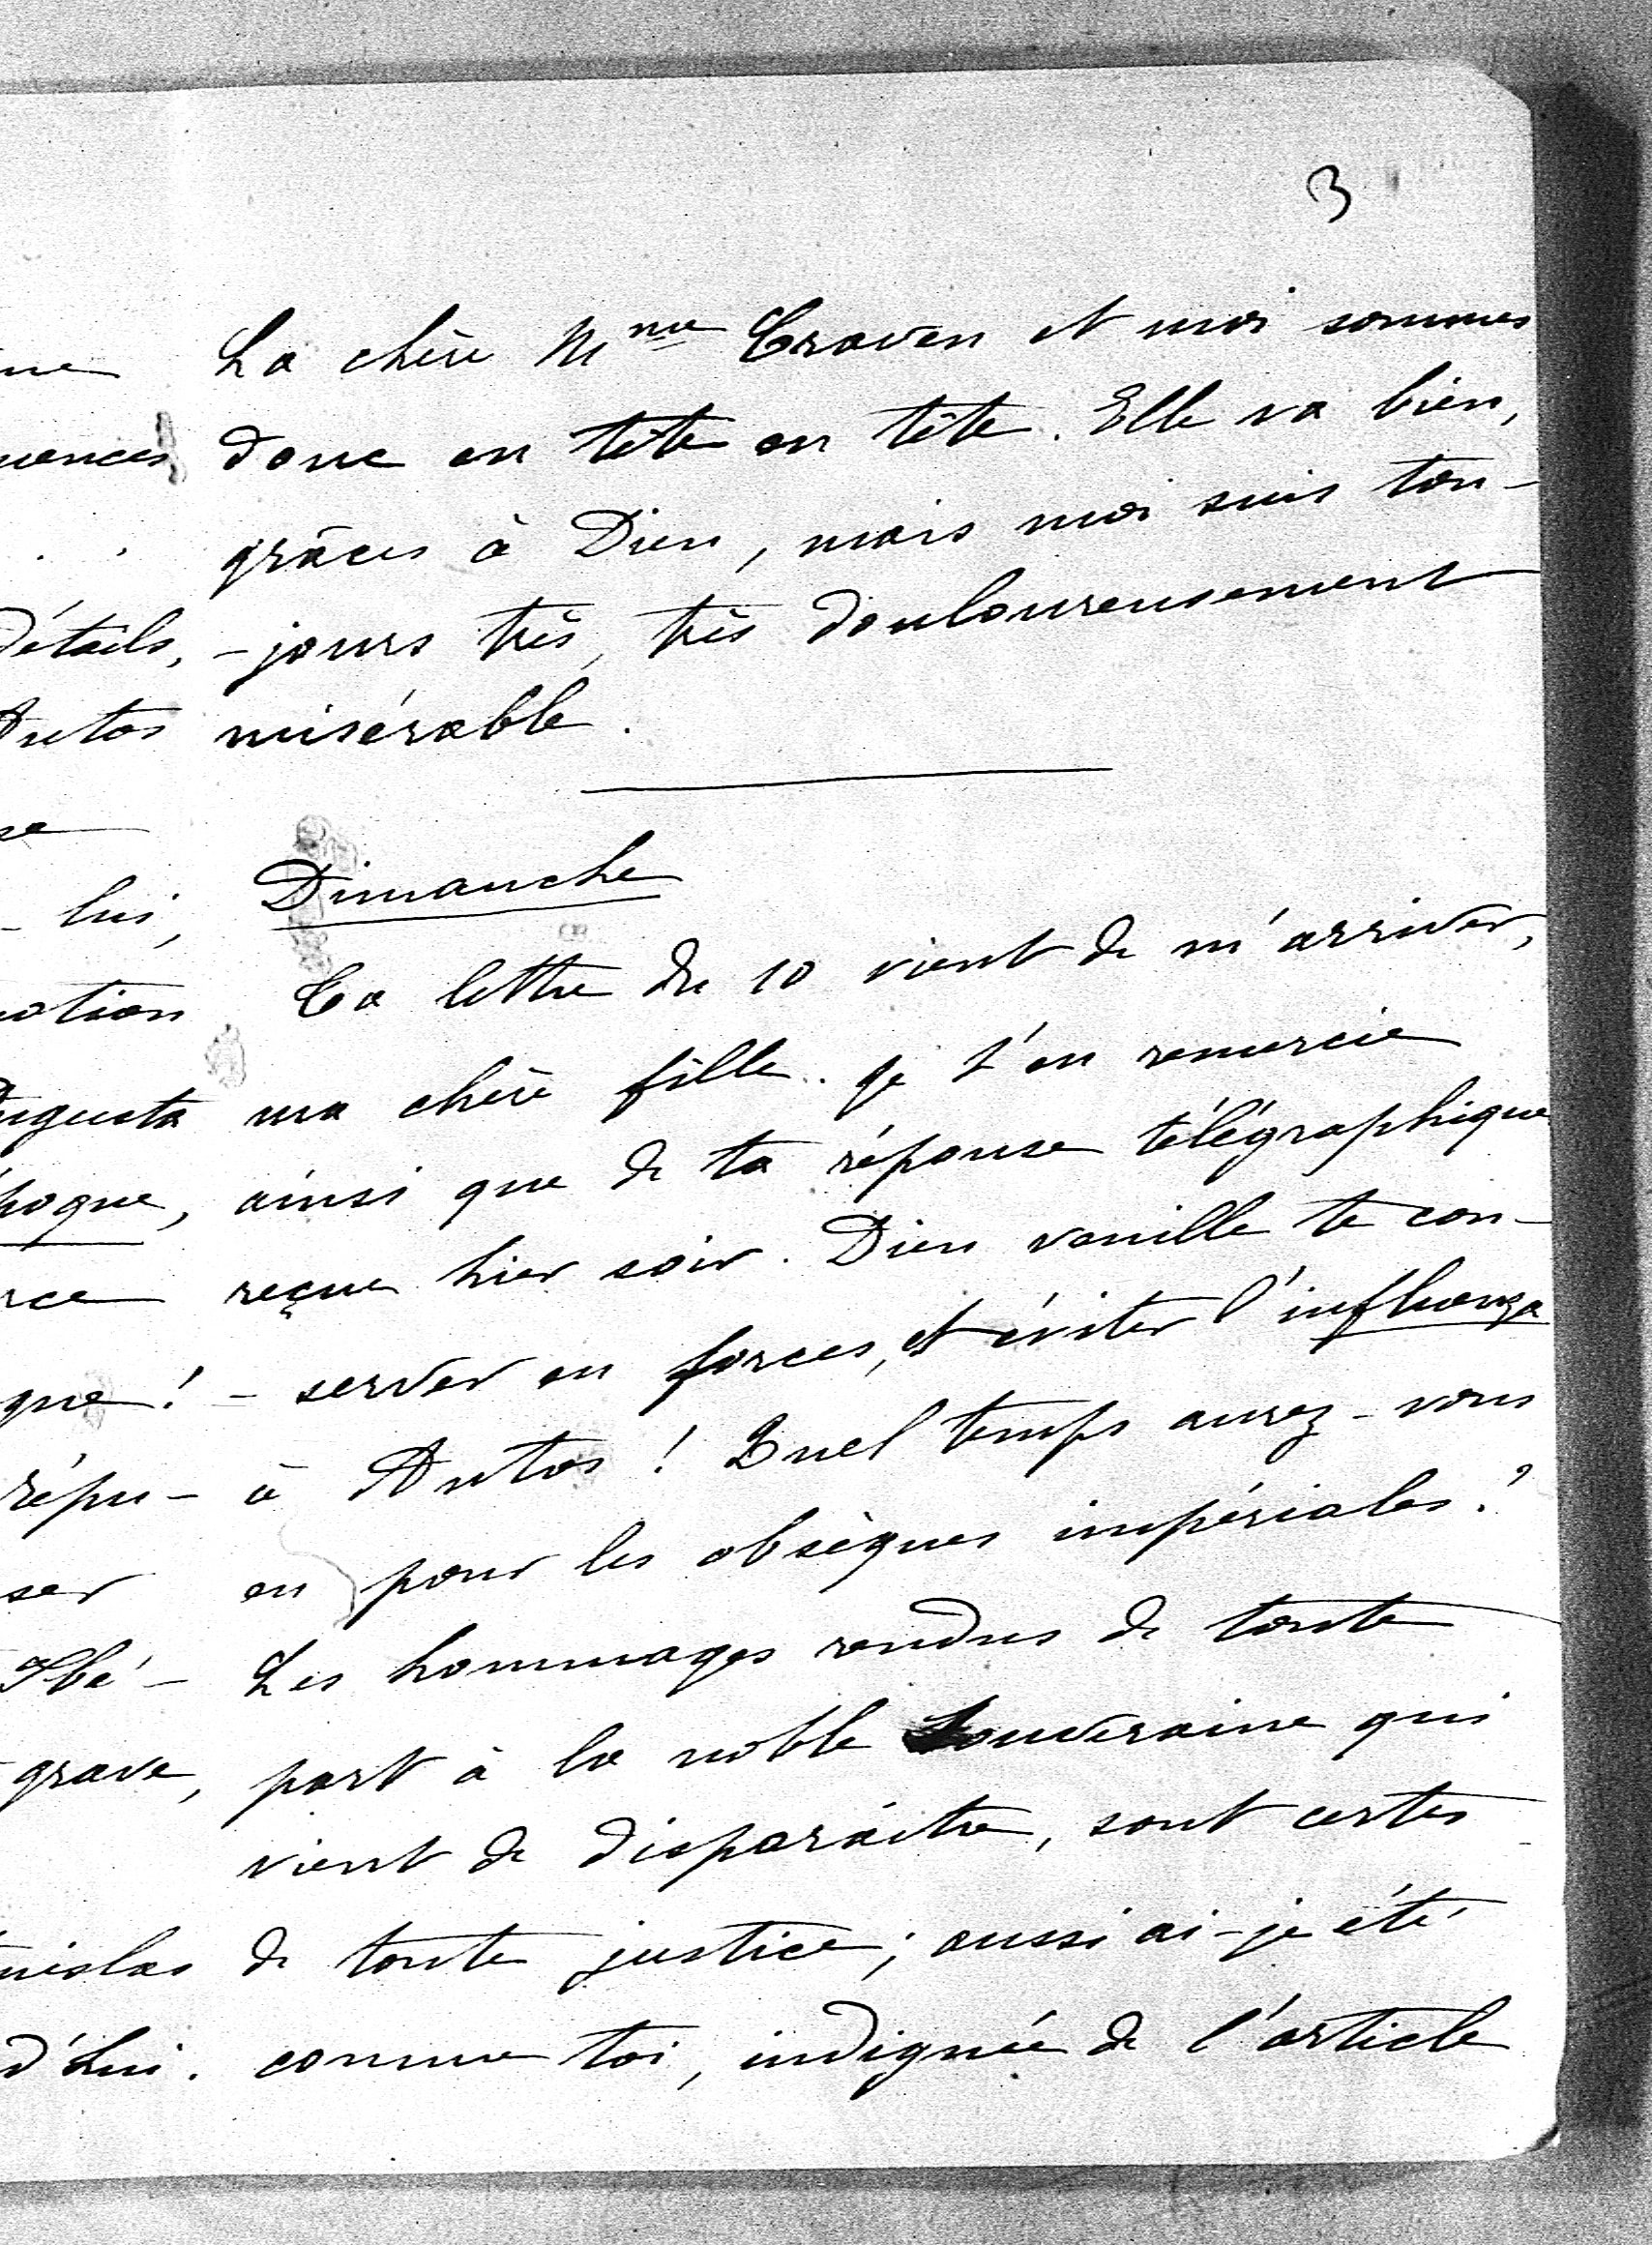 3
La chère Mme Craven et moi sommes
donc en tête en tête. Elle va bien,
grâces à Dieu, mais moi suis tou-
-jours très, très douloureusement
misérable.
Dimanche
Ta lettre du 10 vient de m'arriver,
ma chère fille. je t'en remercie
ainsi que de ta réponse télégraphique
reçue hier soir. Dieu veuille te con-
-server en forces, et éviter l'influenza
à Antos ! Quel temps aurez-vous
eu pour les obsèques impériales ?
Les hommages rendus de toute
part à la noble Souveraine qui
vient de disparaître, sont certes
de toute justice ; aussi ai-je été
comme toi, indignée de l'article